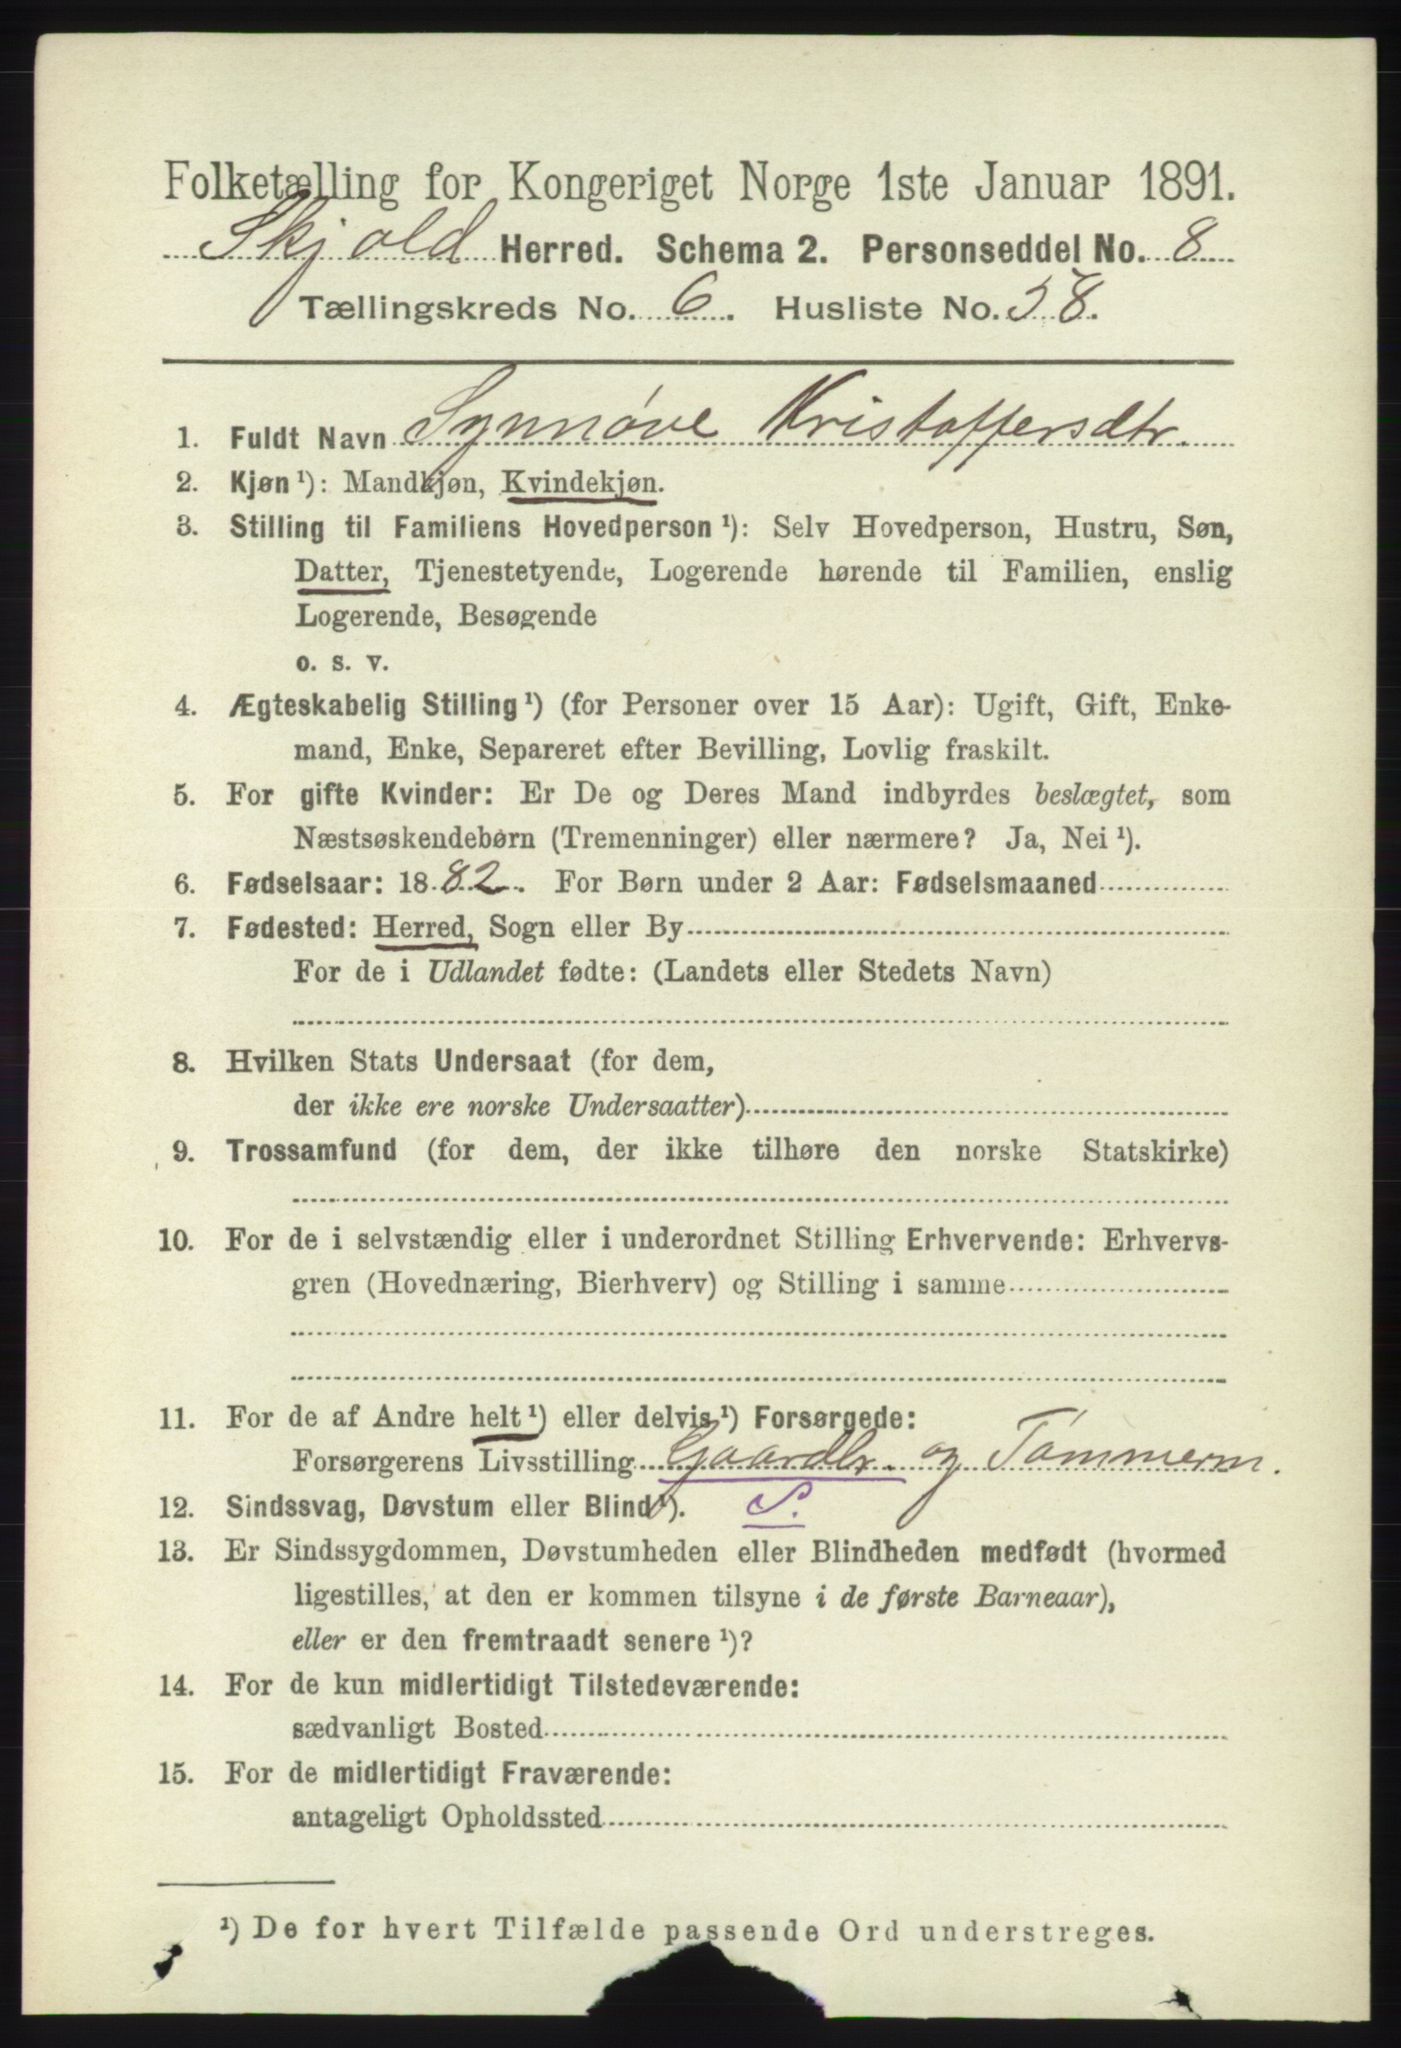 Folketælling for Kongeriget Norge 1ste Januar 1891.
Skjold Herred. Schema 2. Personseddel No. 8
Tællingskreds No. 6. Husliste No. 58.
1. Fuldt Navn Synnøve Kristoffersdtr.
2. Kjøn ¹): Mandkjøn, Kvindekjøn.
3. Stilling til Familiens Hovedperson ¹): Selv Hovedperson, Hustru, Søn,
Datter, Tjenestetyende, Logerende hørende til Familien, enslig
Logerende, Besøgende
o. s. v.
4. Ægteskabelig Stilling ¹) (for Personer over 15 Aar): Ugift, Gift, Enke-
mand, Enke, Separeret efter Bevilling, Lovlig fraskilt.
5. For gifte Kvinder: Er De og Deres Mand indbyrdes beslægtet, som
Næstsøskendebørn (Tremenninger) eller nærmere? Ja, Nei ¹).
6. Fødselsaar: 1882. For Børn under 2 Aar: Fødselsmaaned
7. Fødested: Herred, Sogn eller By
For de i Udlandet fødte: (Landets eller Stedets Navn)
8. Hvilken Stats Undersaat (for dem,
der ikke ere norske Undersaatter)
9. Trossamfund (for dem, der ikke tilhøre den norske Statskirke)
10. For de i selvstændig eller i underordnet Stilling Erhvervende: Erhvervs-
gren (Hovednæring, Bierhverv) og Stilling i samme
11. For de af Andre helt ¹) eller delvis ¹) Forsørgede:
Forsørgerens Livsstilling Gaardbr. og Tømmerm.
12. Sindssvag, Døvstum eller Blind ¹). S.
13. Er Sindssygdommen, Døvstumheden eller Blindheden medfødt (hvormed
ligestilles, at den er kommen tilsyne i de første Barneaar),
eller er den fremtraadt senere ¹)?
14. For de kun midlertidigt Tilstedeværende:
sædvanligt Bosted
15. For de midlertidigt Fraværende:
antageligt Opholdssted
¹) De for hvert Tilfælde passende Ord understreges.